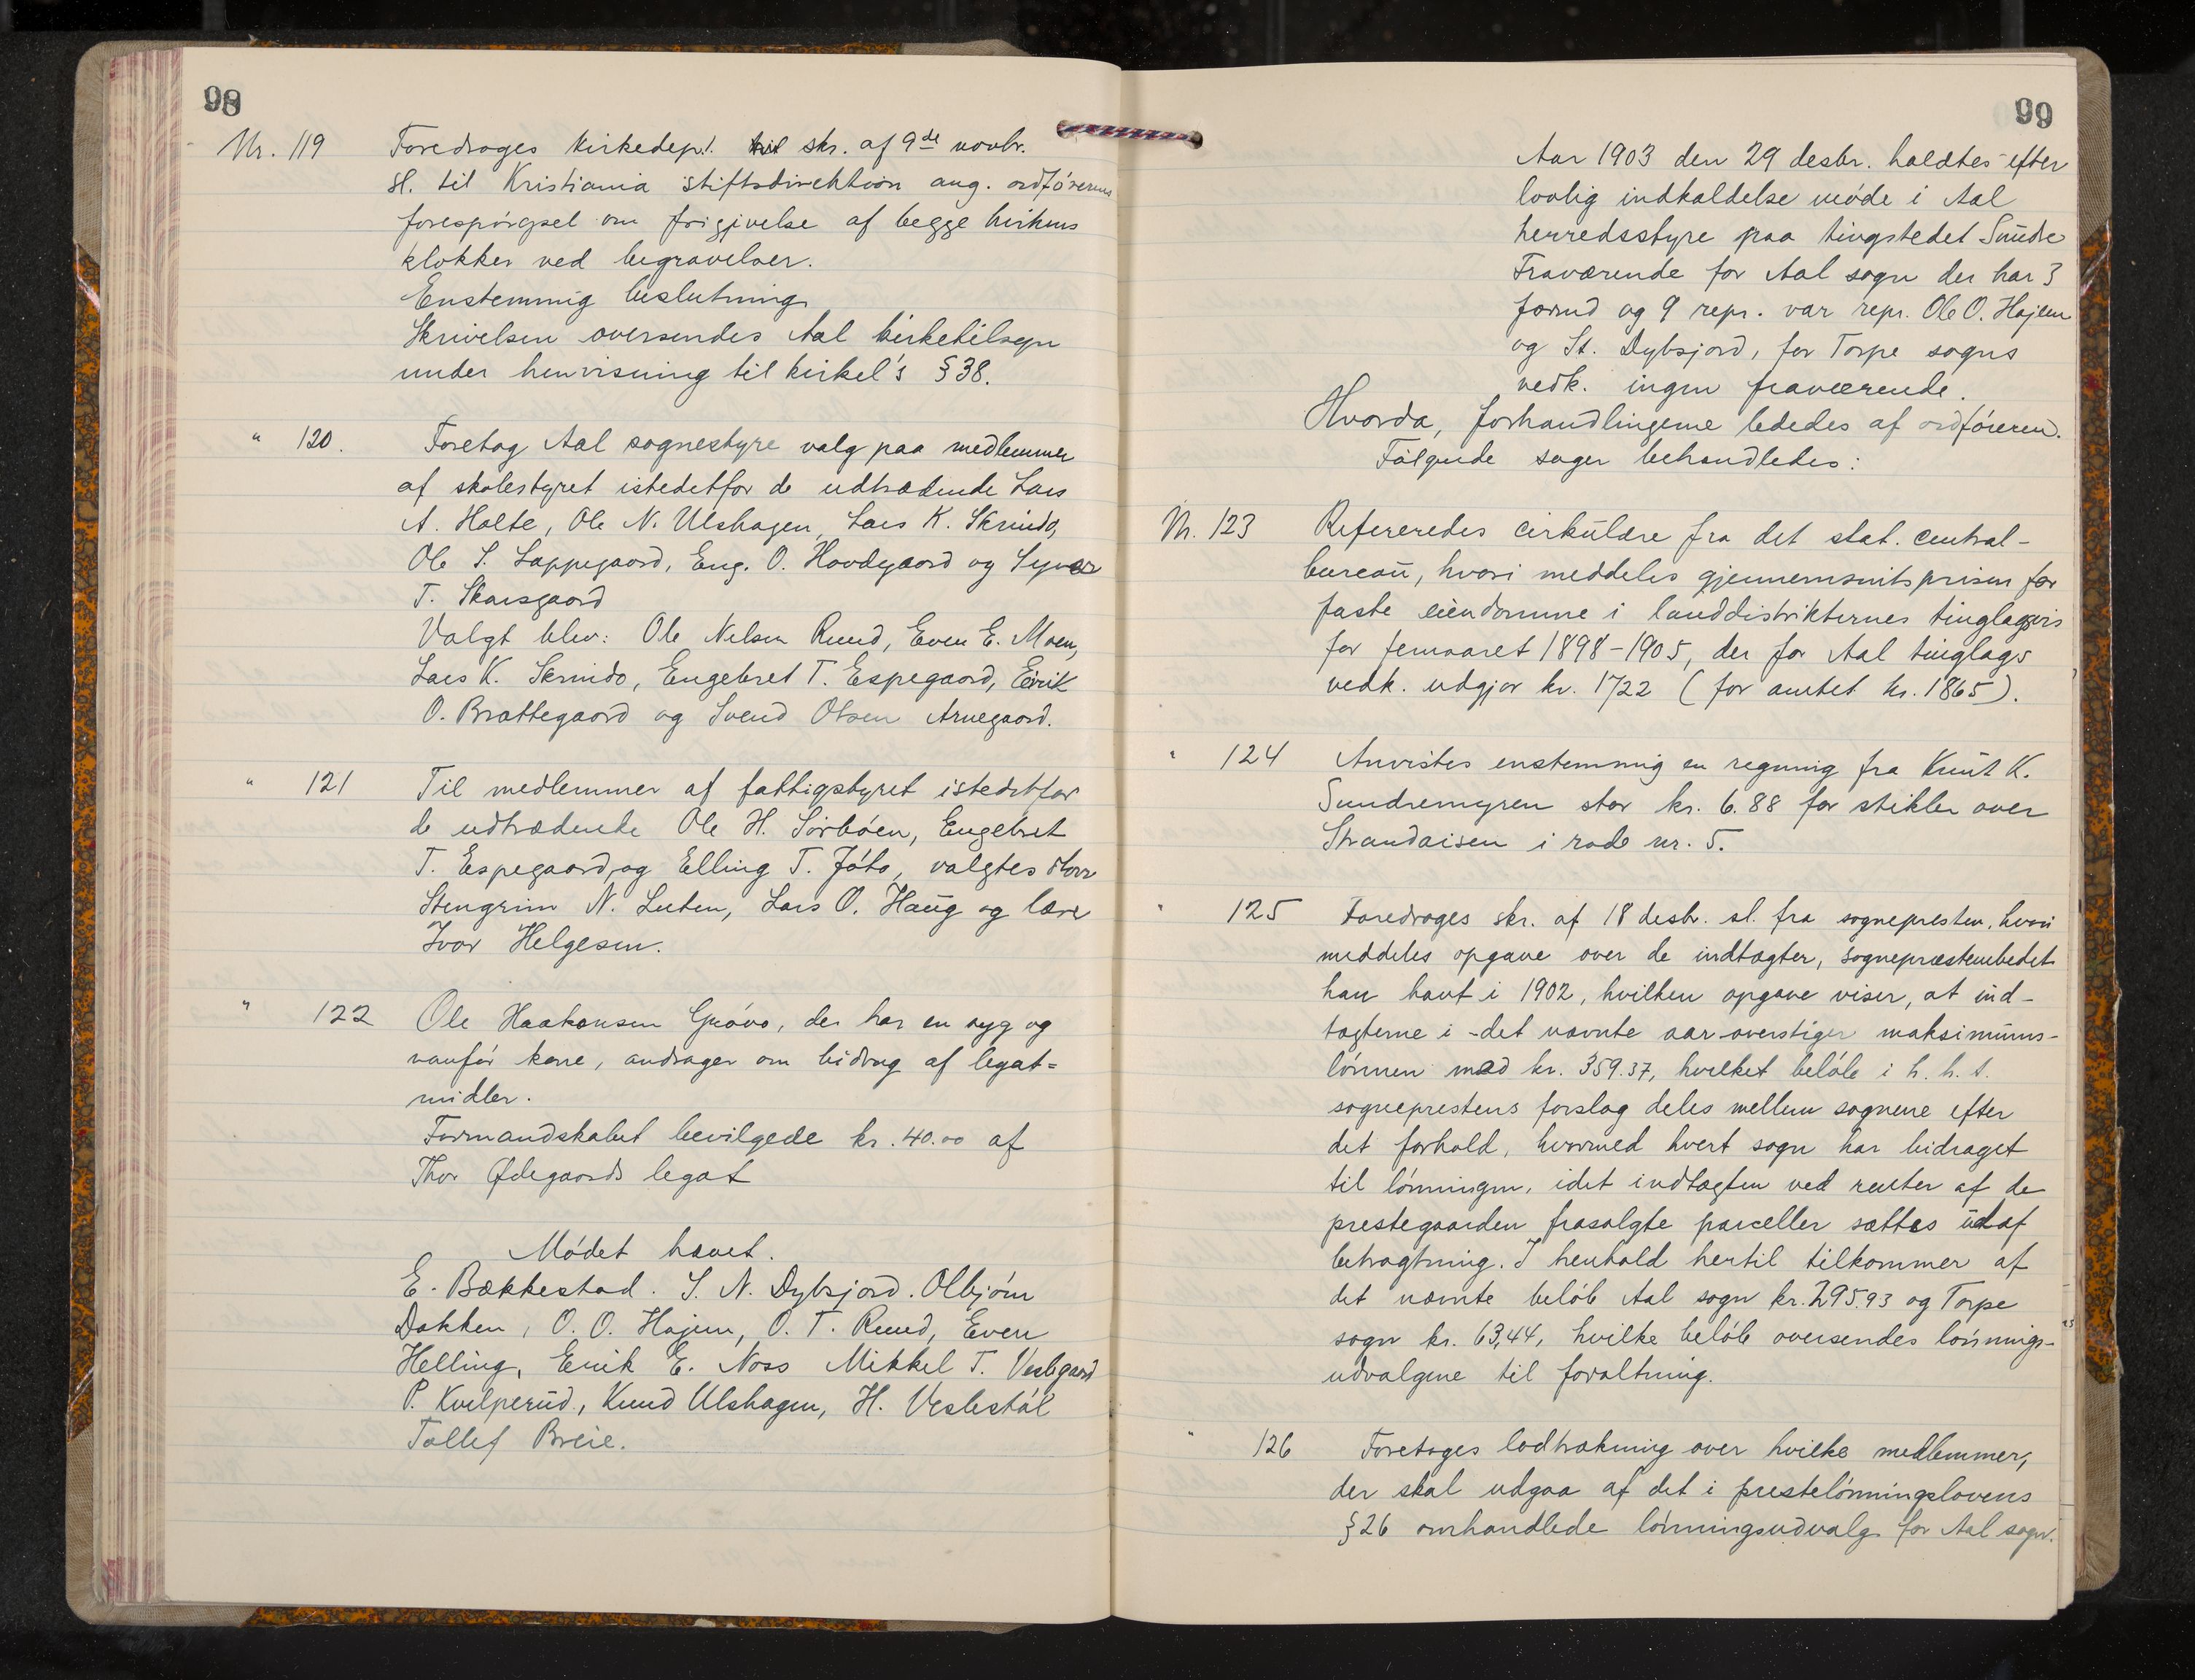 98
Nr. 119 Foredroges kirkedep.t. skr. af 9de novbr.
sl. til Kristiania stiftsdirektion ang. ordförerens
forespörgsel om frigivelse af begge kirkens
klokker ved begravelser.
Enstemmig beslutning
Skrivelsen oversendes Aal kirketilsyn
under henvisning til kirkel's § 38.
" 120. Foretog Aal sognestyre valg paa medlemmer
af skolestyret istedetfor de udtrædende Lars
A. Holte, Ole N. Ulshagen, Lars K. Skrindo,
Ole S. Lappegaard, Eng. O. Hovdgaard og Syver
T. Skarsgaard
Valgt blev: Ole Nilsen Ruud, Even E. Moen,
Lars K. Skrindo, Engebret T. Espegaard, Eirik
O. Brattegaard og Svend Olsen Arnegaard.
" 121 Til medlemmer af fattigstyret istedetfor
de udtrædende Ole H. Sörböen, Engebret
T. Espegaard, og Elling T. Jóto, valgtes
Stengrim N. Luten, Lars O. Haug og lærer
Ivar Helgesen.
" 122 Ole Haakonsen Gróvo, der har en syg og
vanför kone, andrager om bidrag af legat=
midler.
Formandskabet bevilgede kr. 40.00 af
Thor Ødegaards legat
Mödet hævet.
E. Bækkestad. S. N. Dybsjord. Olbjörn
Dokken, O. O. Hajem, O. T. Ruud, Even
Helling, Eirik E. Noss Mikkel T. Veslegaard
P. Kvilperud, Knud Ulshagen, H. Veslestöl
Tollef Breie.
99
Aar 1903 den 29 desbr. holdtes efter
lovlig indkaldelse möde i Aal
herredsstyre paa tingstedet Sundre
Fraværende for Aal sogn der har 3
formd og 9 repr. var repr. Ole O. Hajem
og St. Dybsjord, for Torpe sogns
vedk. ingen fraværende.
Hvorda, forhandlingerne lededes af ordföreren.
Fölgende sager behandledes:
Nr. 123 Refereredes cirkulære fra det stat. central-
bureau, hvori meddeles gjennemsnitsprisen for
faste eiendomme i landdistrikternes tinglagsvis
for femaaret 1898-1905, der for Aal tinglags
vedk. udgjør kr. 1722 (for amtet kr. 1865).
" 124 Anvistes enstemmig en regning fra Knut K.
Sundremyren stor kr. 6.88 for stikler over
Strandaisen i rode nr. 5.
" 125 Foredroges skr. af 18 desbr. sl. fra sognepresten, hvori
meddeles opgave over de indtægter, sognepræstembedet
han havt i 1902, hvilken opgave viser, at ind-
tægterne i det nævnte aar overstiger maksimums-
lönnen med kr. 359.37, hvilket belöb i h. h. t.
sogneprestens forslag deles mellem sognene efter
det forhold, hvormed hvert sogn har bidraget
til lönningen, idet indtægten ved renter af de
prestegaarden frasolgte parceller sættes ud af
betragtning. I henhold hertil tilkommer af
det nævnte belöb Aal sogn kr. 295.93 og Torpe
sogn kr. 63,44, hvilke belöb oversendes lönnings-
udvalgene til forvaltning.
" 126 Foretoges lodtrækning over hvilke medlemmer,
der skal udgaa af det i prestelönningslovens
§ 26 omhandlede lönningsudvalg for Aal sogn.